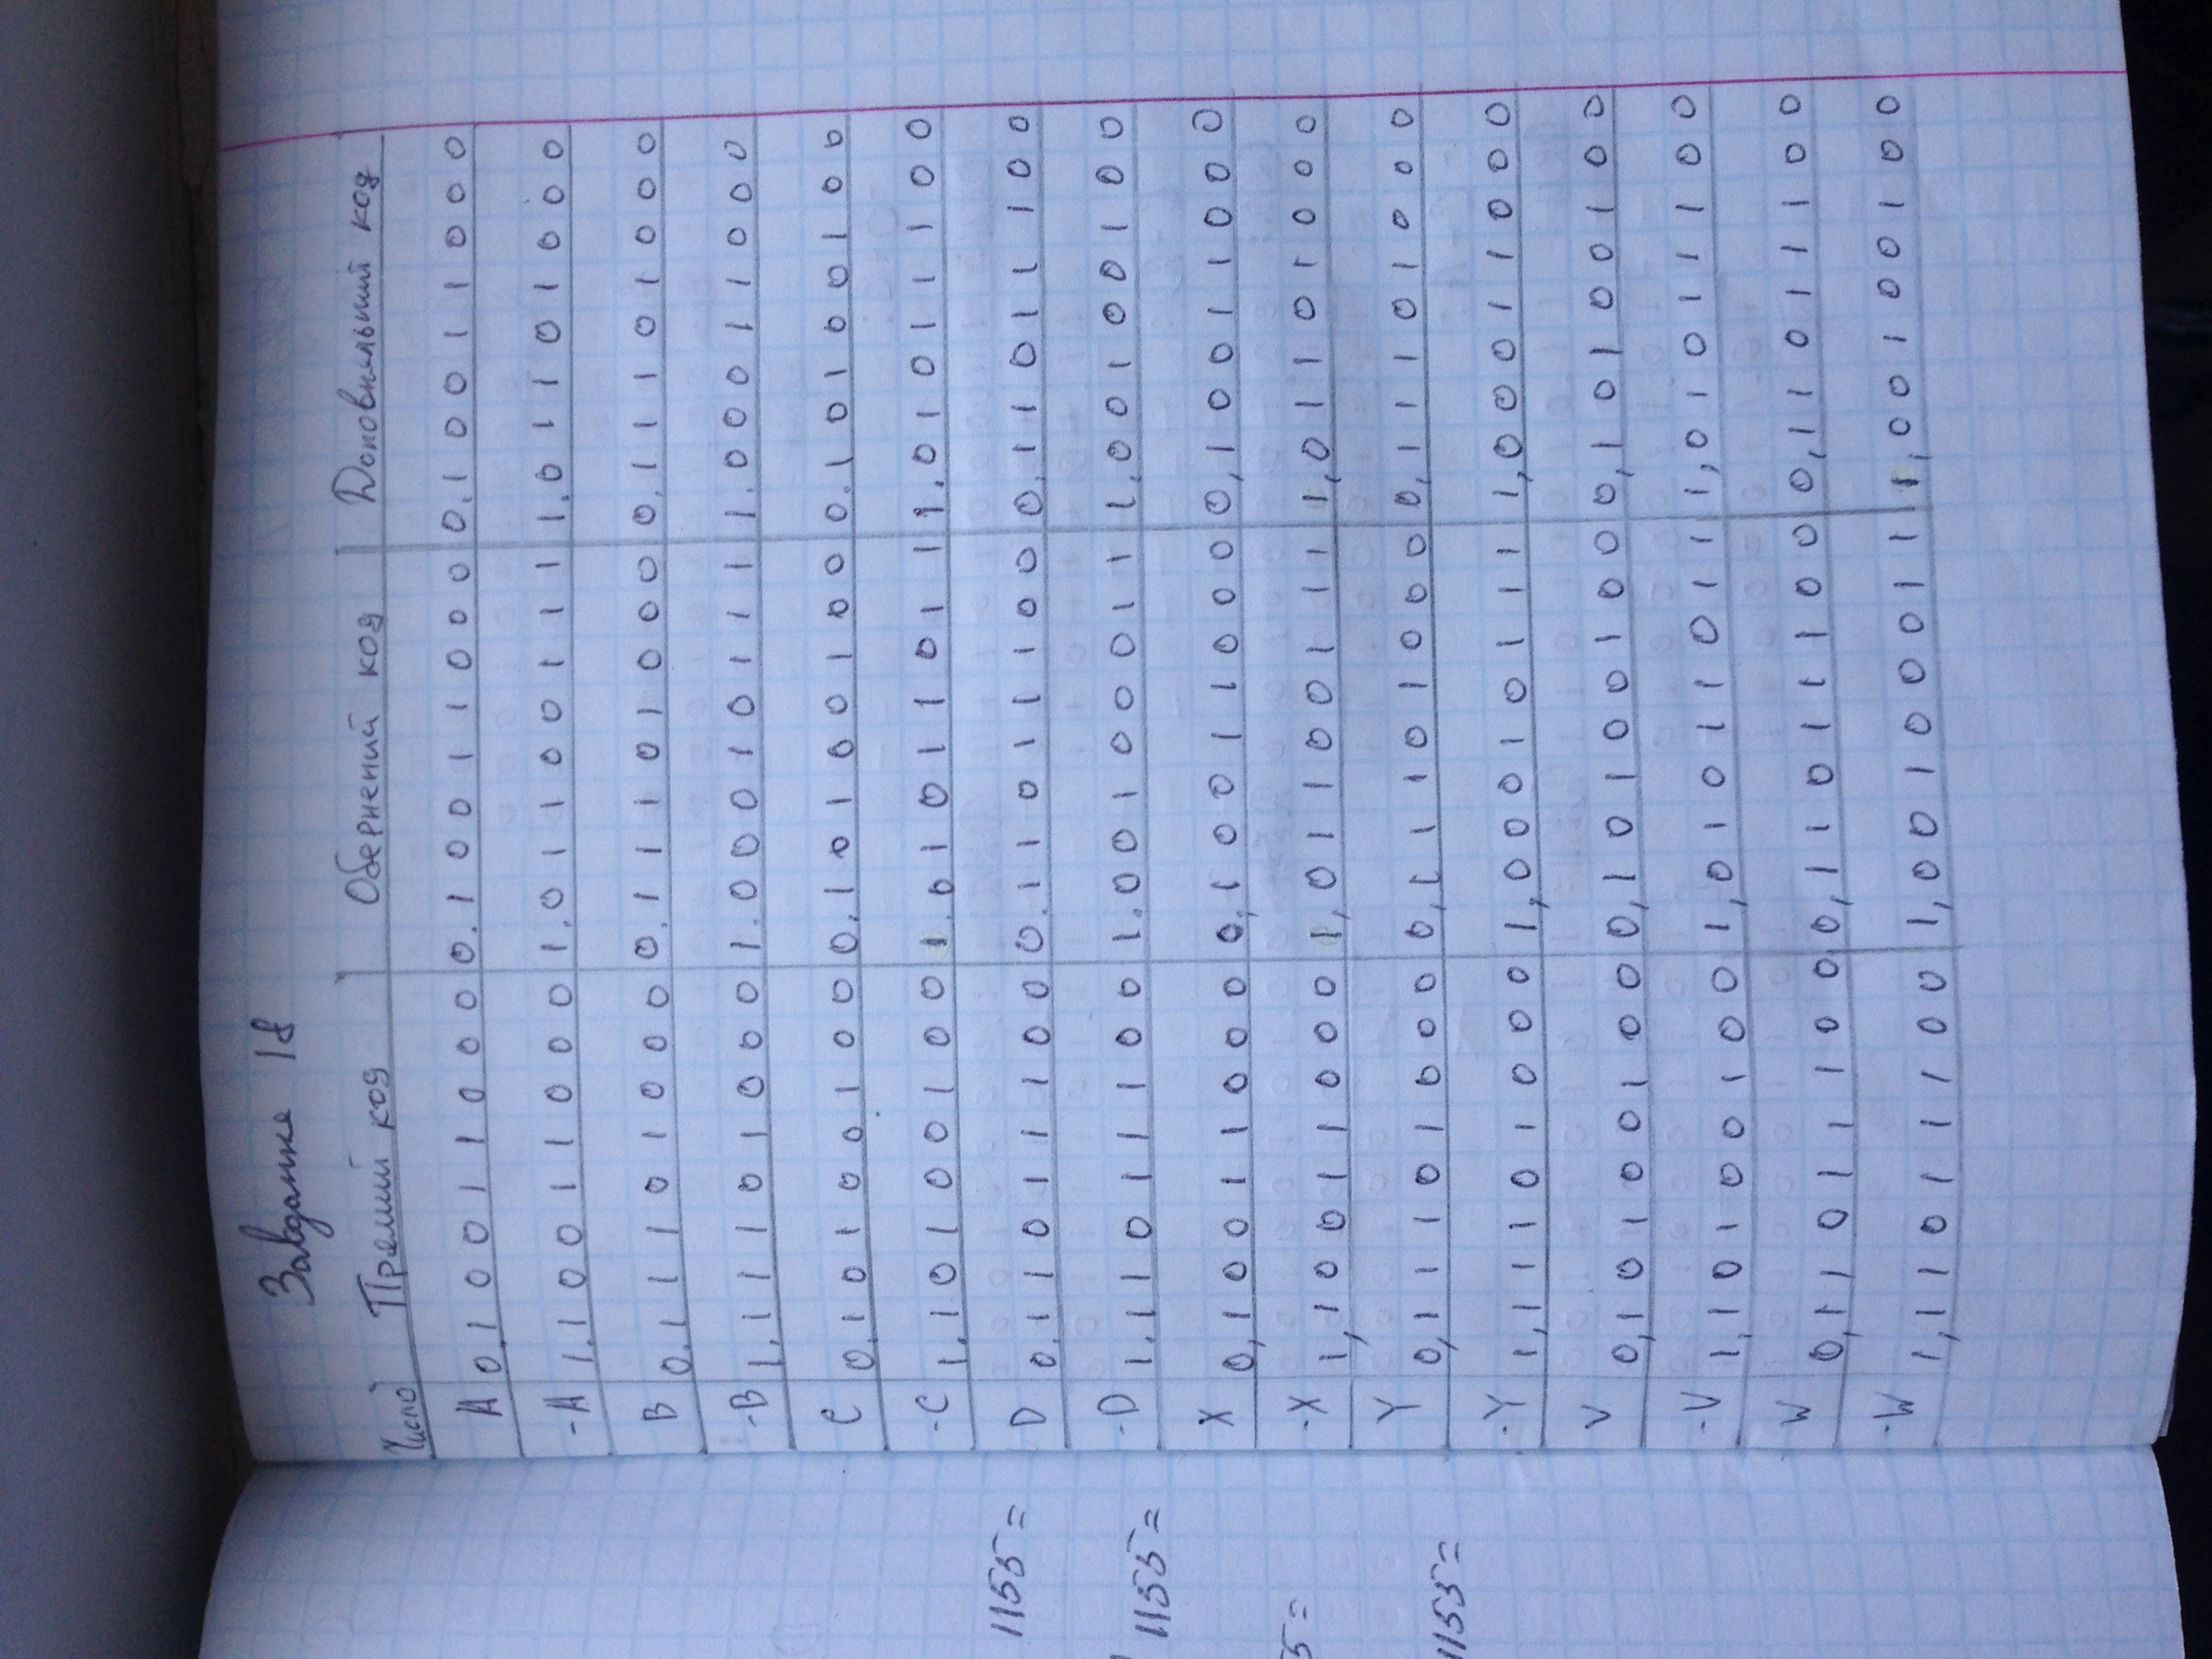 Завдання 18
Число Прямий код Обернений код Доповняльний код
A 0.10011000 0.10011000 0.10011000
-A 1.10011000 1.01100111 1.01101000
B 0.11101000 0.11101000 0.11101000
-B 1.11101000 1.00010111 1.00011000
C 0.10100100 0.10100100 0.10100100
-C 1.10100100 1.01011011 1.01011100
1155=
D 0.11011100 0.11011100 0.11011100
1155=
-D 1.11011100 1.00100011 1.00100100
X 0,10011000 0,10011000 0,10011000
5=
-X 1,10011000 1,01100111 1,01101000
Y 0,11101000 0,11101000 0,11101000
1155=
-Y 1,11101000 1,00010111 1,00011000
V 0,10100100 0,10100100 0,10100100
-V 1,10100100 1,01011011 1,01011100
W 0,11011100 0,11011100 0,11011100
-W 1,11011100 1,00100011 1,00100100